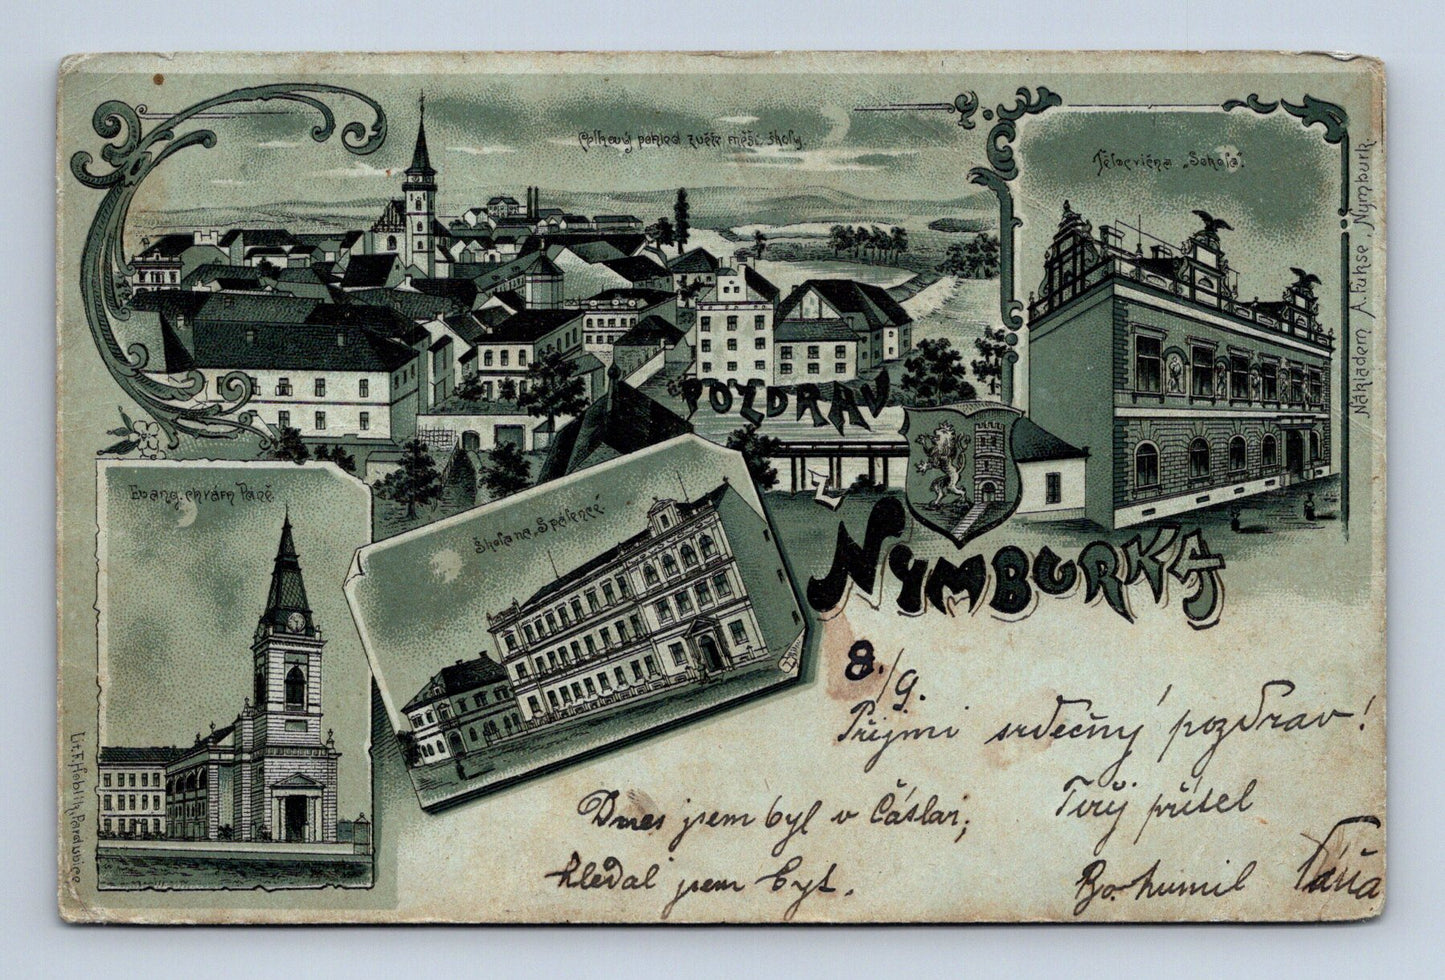 Celkový pohled z věže měšť. školy.
Tělocvična „Sokola“.
Nákladem A. Fuhse, Nymburk.
POZDRAV
z
NYMBURKA
Evang. chrám Páně.
Škola na „Spálence“
Lit. F. Hoblík, Pardubice
8./9.
Přijmi srdečný pozdrav!
Dnes jsem byl v Čáslavi;
hledal jsem byt.
Tvůj přítel
Bohumil